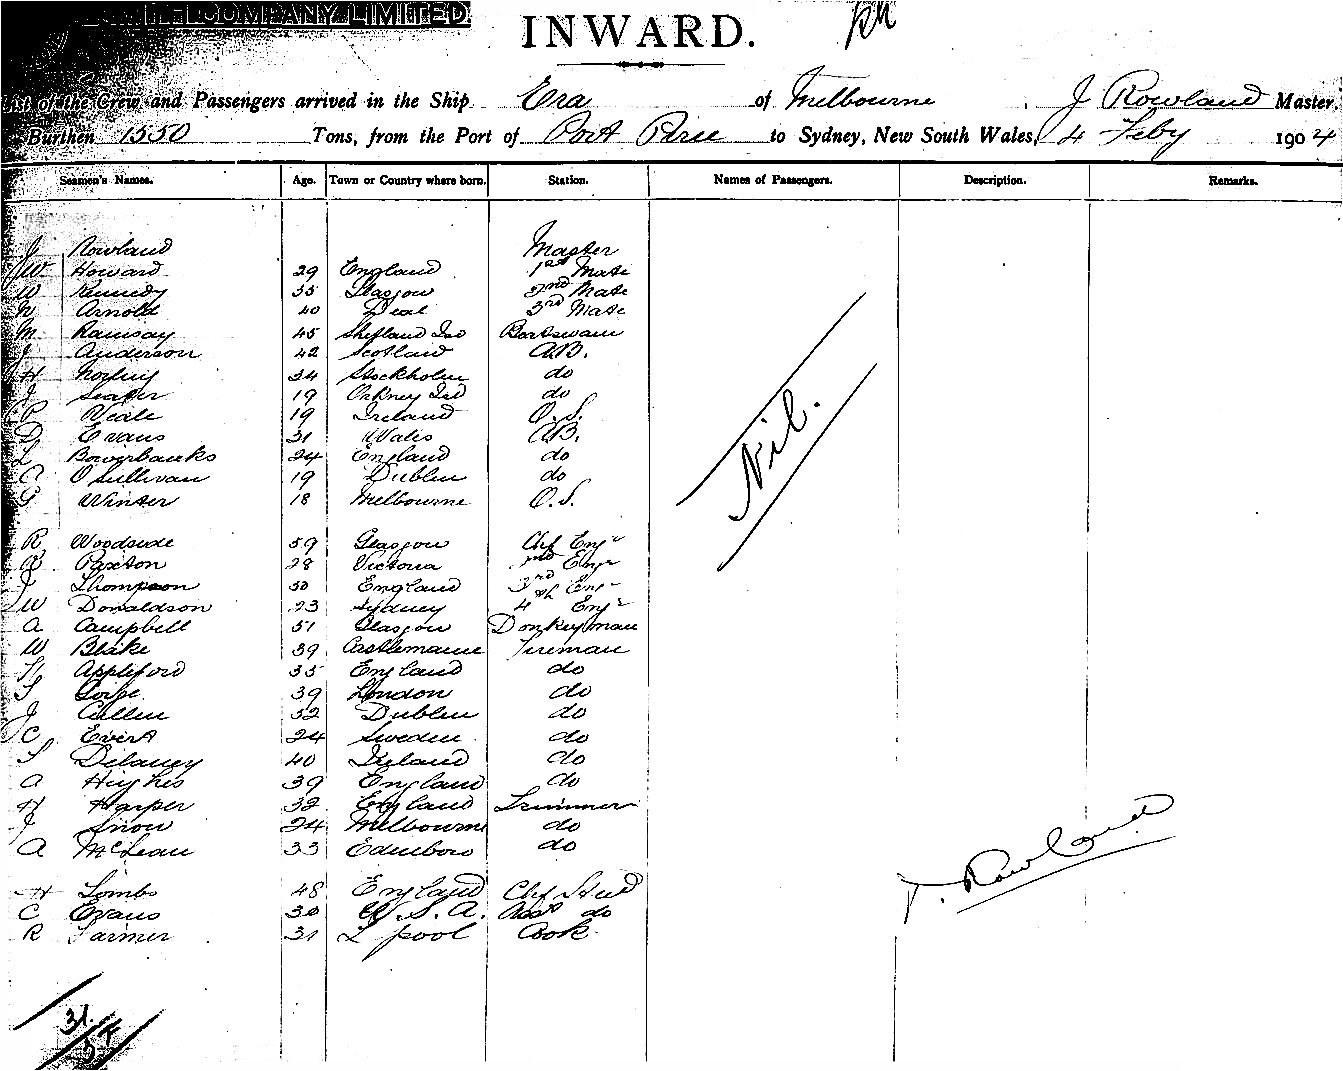 COMPANY LIMITED
INWARD.
List of the Crew and Passengers arrived in the Ship Era of Melbourne, J Rowland Master,
Burthen 1550 Tons, from the Port of Port Pirie to Sydney, New South Wales, 4 Feby 1904
Seamen's Names. Age. Town or Country where born. Station. Names of Passengers. Description. Remarks.
J Rowland Master
JW Howard 29 England 1st Mate
W Kennedy 35 Glasgow 2nd Mate
Arnold 40 Deal 3rd Mate
M Ramsay 45 Shetland Isd Boatswain
J Anderson 42 Scotland A.B.
H 34 Stockholm do
J Seater 19 Orkney Isd do
P Veale 19 Ireland O.S.
D Evans 31 Wales A.B.
L Bowerbanks 24 England do
O'Sullivan 19 Dublin do
G Winter 18 Melbourne O.S.
Nil.
R Woodside 59 Glasgow Chf Engr
R Paxton 28 Victoria 2nd Engr
J Thompson 30 England 3rd Engr
W Donaldson 23 Sydney 4th Engr
A Campbell 51 Glasgow Donkeyman
W Blake 39 Castlemaine Fireman
H Appleford 35 England do
39 London do
J Cullen 32 Dublin do
C Evert 24 Sweden do
Delaney 40 Ireland do
A Hughes 39 England do
H Harper 32 England Trimmer
J Snow 24 Melbourne do
A McLean 33 Edinboro do
H Tombs 48 England Chf Stewd
C Evans 30 U.S.A. Asst do
R Farmer 31 L'pool Cook
J. Rowland
31